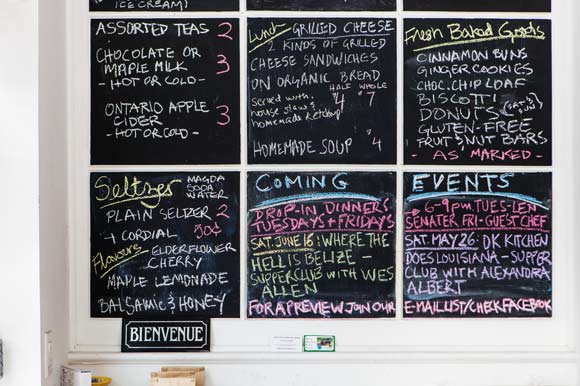 ICE CREAM)
ASSORTED TEAS 2
CHOCOLATE OR
MAPLE MILK 3
- HOT OR COLD -
ONTARIO APPLE
CIDER 3
- HOT OR COLD -
Lunch - GRILLED CHEESE
2 KINDS OF GRILLED
CHEESE SANDWICHES
ON ORGANIC BREAD
HALF WHOLE
served with $4 $7
house slaw &
homemade ketchup
HOMEMADE SOUP $4
Fresh Baked Goods
CINNAMON BUNS
GINGER COOKIES
CHOC. CHIP LOAF
BISCOTTI
DONUTS (SAT. & SUN.)
GLUTEN-FREE
FRUIT & NUT BARS
- AS MARKED -
Seltzer MAGDA
SODA
WATER
PLAIN SELZER 2
+ CORDIAL 50¢
Flavours ELDERFLOWER
CHERRY
MAPLE LEMONADE
BALSAMIC & HONEY
COMING
DROP-IN DINNERS
TUESDAYS + FRIDAYS
SAT. JUNE 16: WHERE THE
HELL IS BELIZE -
SUPPERCLUB WITH WES
ALLEN
FOR A PREVIEW JOIN OUR
EVENTS
6-9PM TUES-LEN
SENATER FRI-GUEST CHEF
SAT. MAY 26: DK KITCHEN
DOES LOUISIANA - SUPPER
CLUB WITH ALEXANDRA
ALBERT
E-MAIL LIST/CHECK FACEBOOK
BIENVENUE